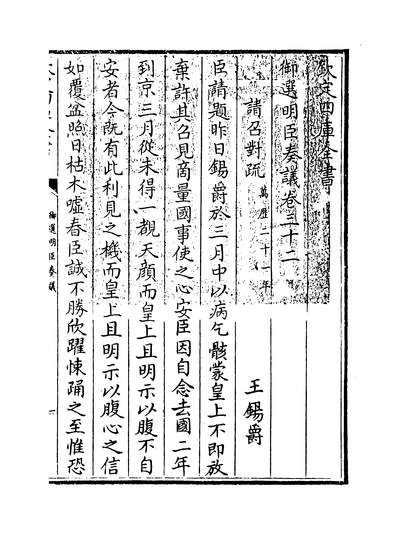 欽定四庫全書
御選明臣奏議卷三十二
請召對疏萬歷二十一年
王錫爵
臣請題昨日錫爵於三月中以病乞骸蒙皇上不即放
棄許其召見商量國事使之心安臣因自念去國二年
到京三月從未得一覩天顔而皇上且明示以腹不自
安者今既有此利見之機而皇上且明示以腹心之信
如覆盆照日枯木噓春臣誠不勝欣躍悚踊之至惟恐
御選明臣奏議
一